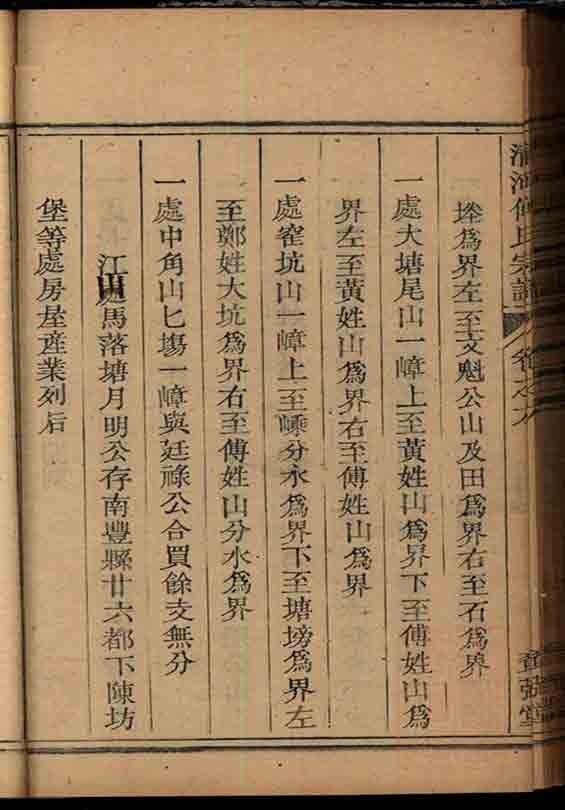 清河傅氏宗譜 卷之六
塋爲界左至文魁公山及田爲界右至石爲界
一處大塘尾山一嶂上至黃姓山爲界下至傅姓山爲
界左至黃姓山爲界右至傅姓山爲界
一處窑坑山一嶂上至嵊分水爲界下至塘塝爲界左
至鄭姓大坑爲界右至傅姓山分水爲界
一處中角山匕塲一嶂與廷祿公合買餘支無分
江馬落塘月明公存南豐縣廿六都下陳坊
堡等處房屋産業列后